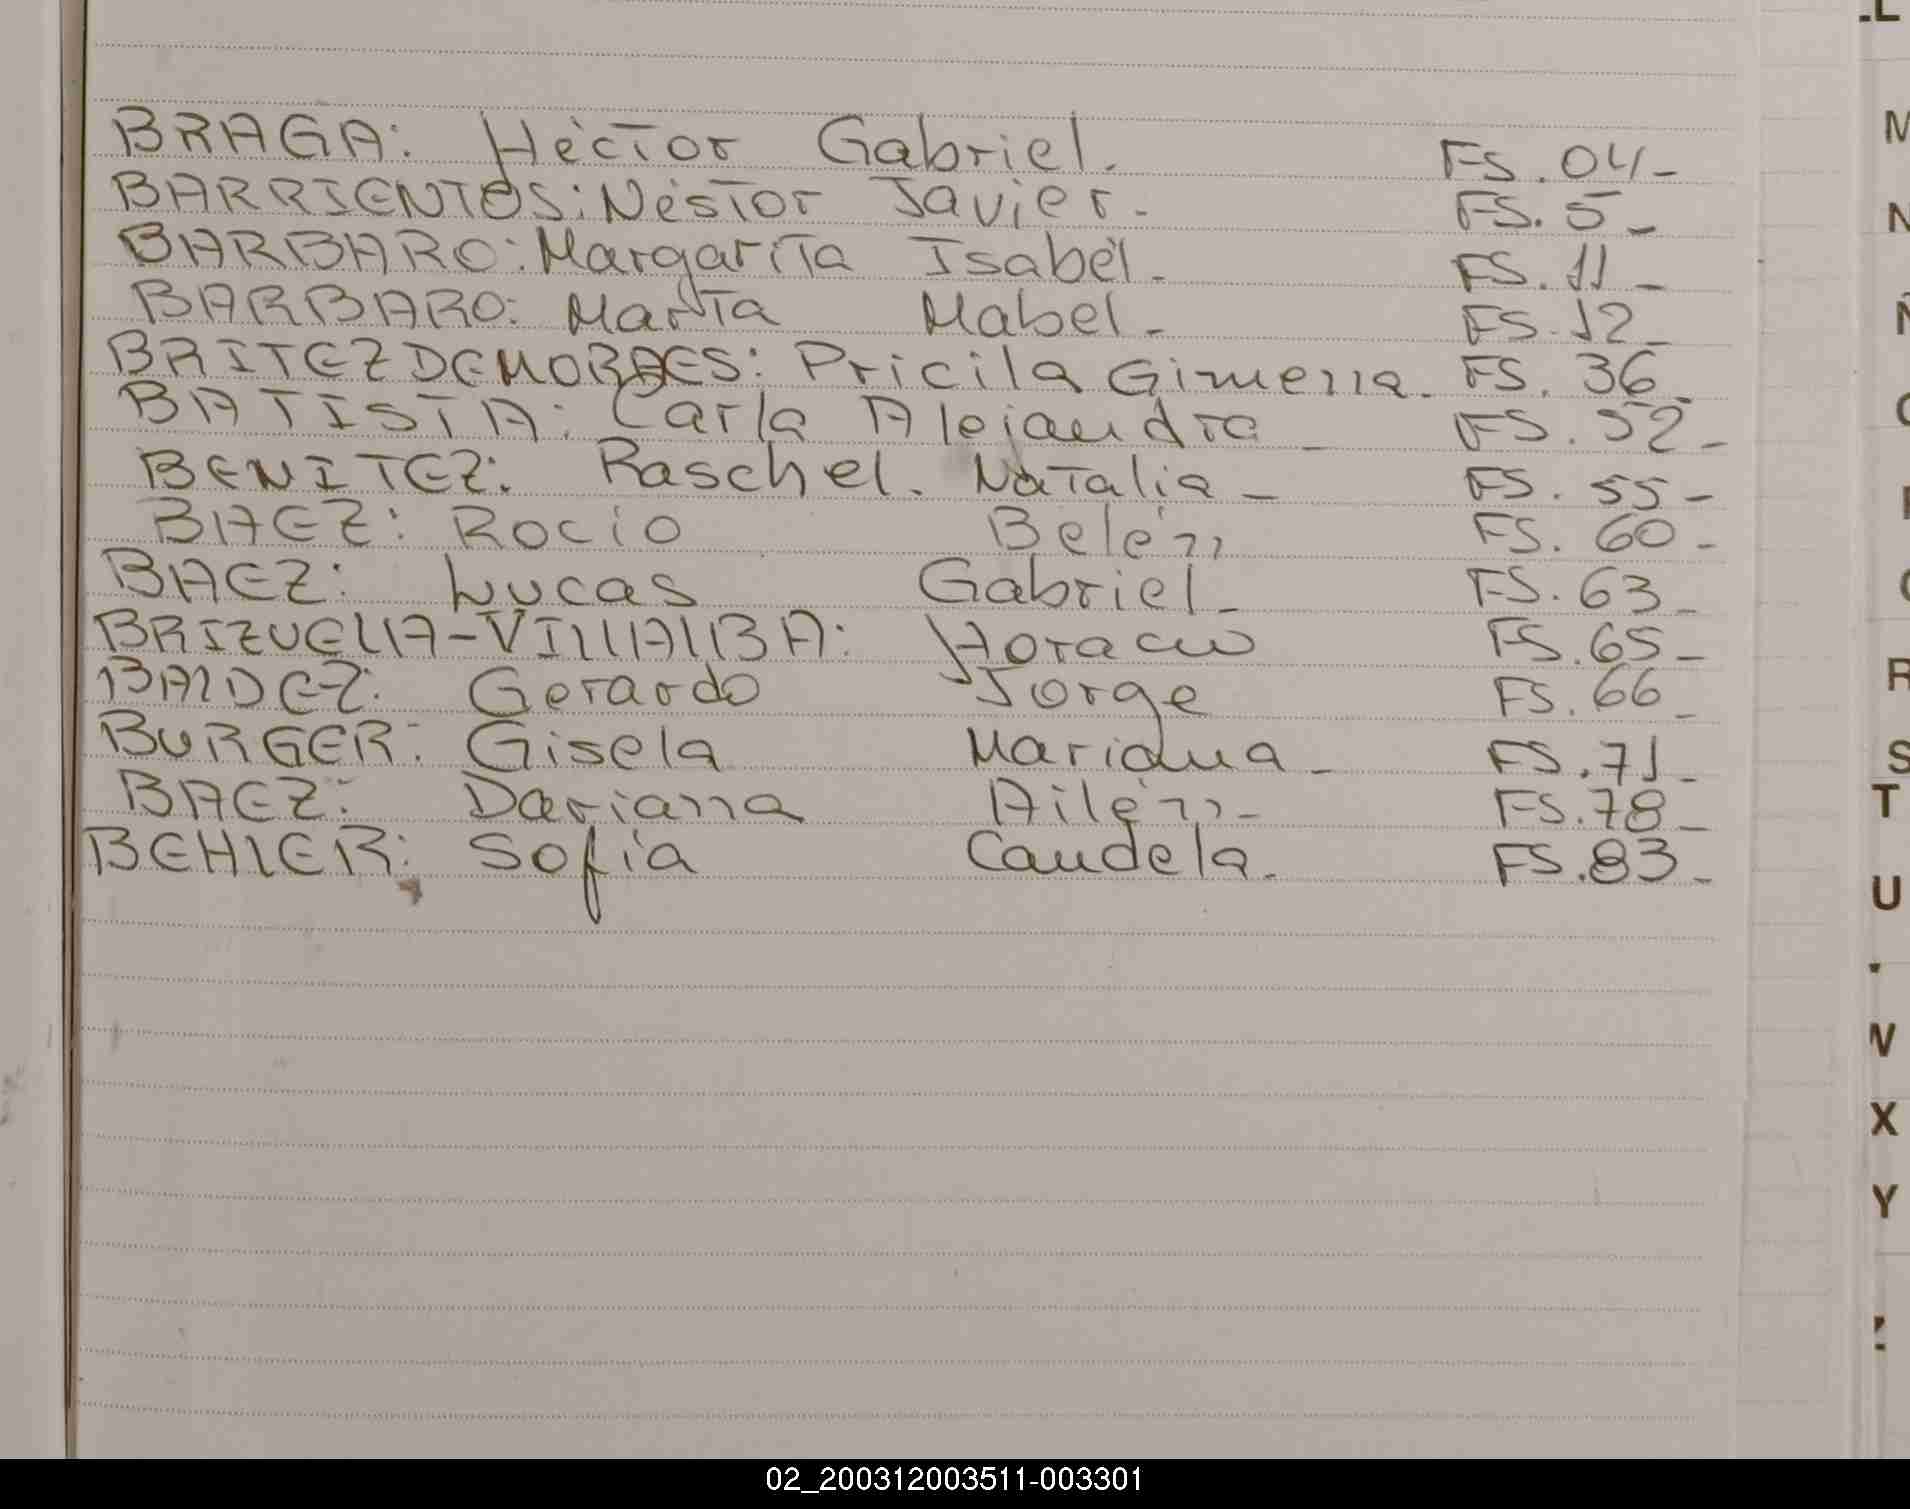 BRAGA: Héctor Gabriel. FS. 04-
BARRIENTOS: Néstor Javier. FS. 5-
BARBARO: Margarita Isabel. FS. 11-
BARBARO: Marta Mabel. FS. 12-
BRITEZ DE MORAES: Pricila Gimena. FS. 36-
BATISTA: Carla Alejandra - FS. 52-
BENITEZ: Raschel. Natalia - FS. 55-
BAEZ: Rocio Belén FS. 60-
BAEZ: Lucas Gabriel- FS. 63-
BRIZUELA-VILLALBA: Horacio FS. 65-
BALDEZ: Gerardo Jorge FS. 66-
BURGER: Gisela Mariana - FS. 71-
BAEZ: Dariana Ailén- FS. 78-
BEHLER: Sofia Candela. FS. 83-
L
M
N
Ñ
O
P
Q
R
S
T
U
W
X
Y
02_200312003511-003301